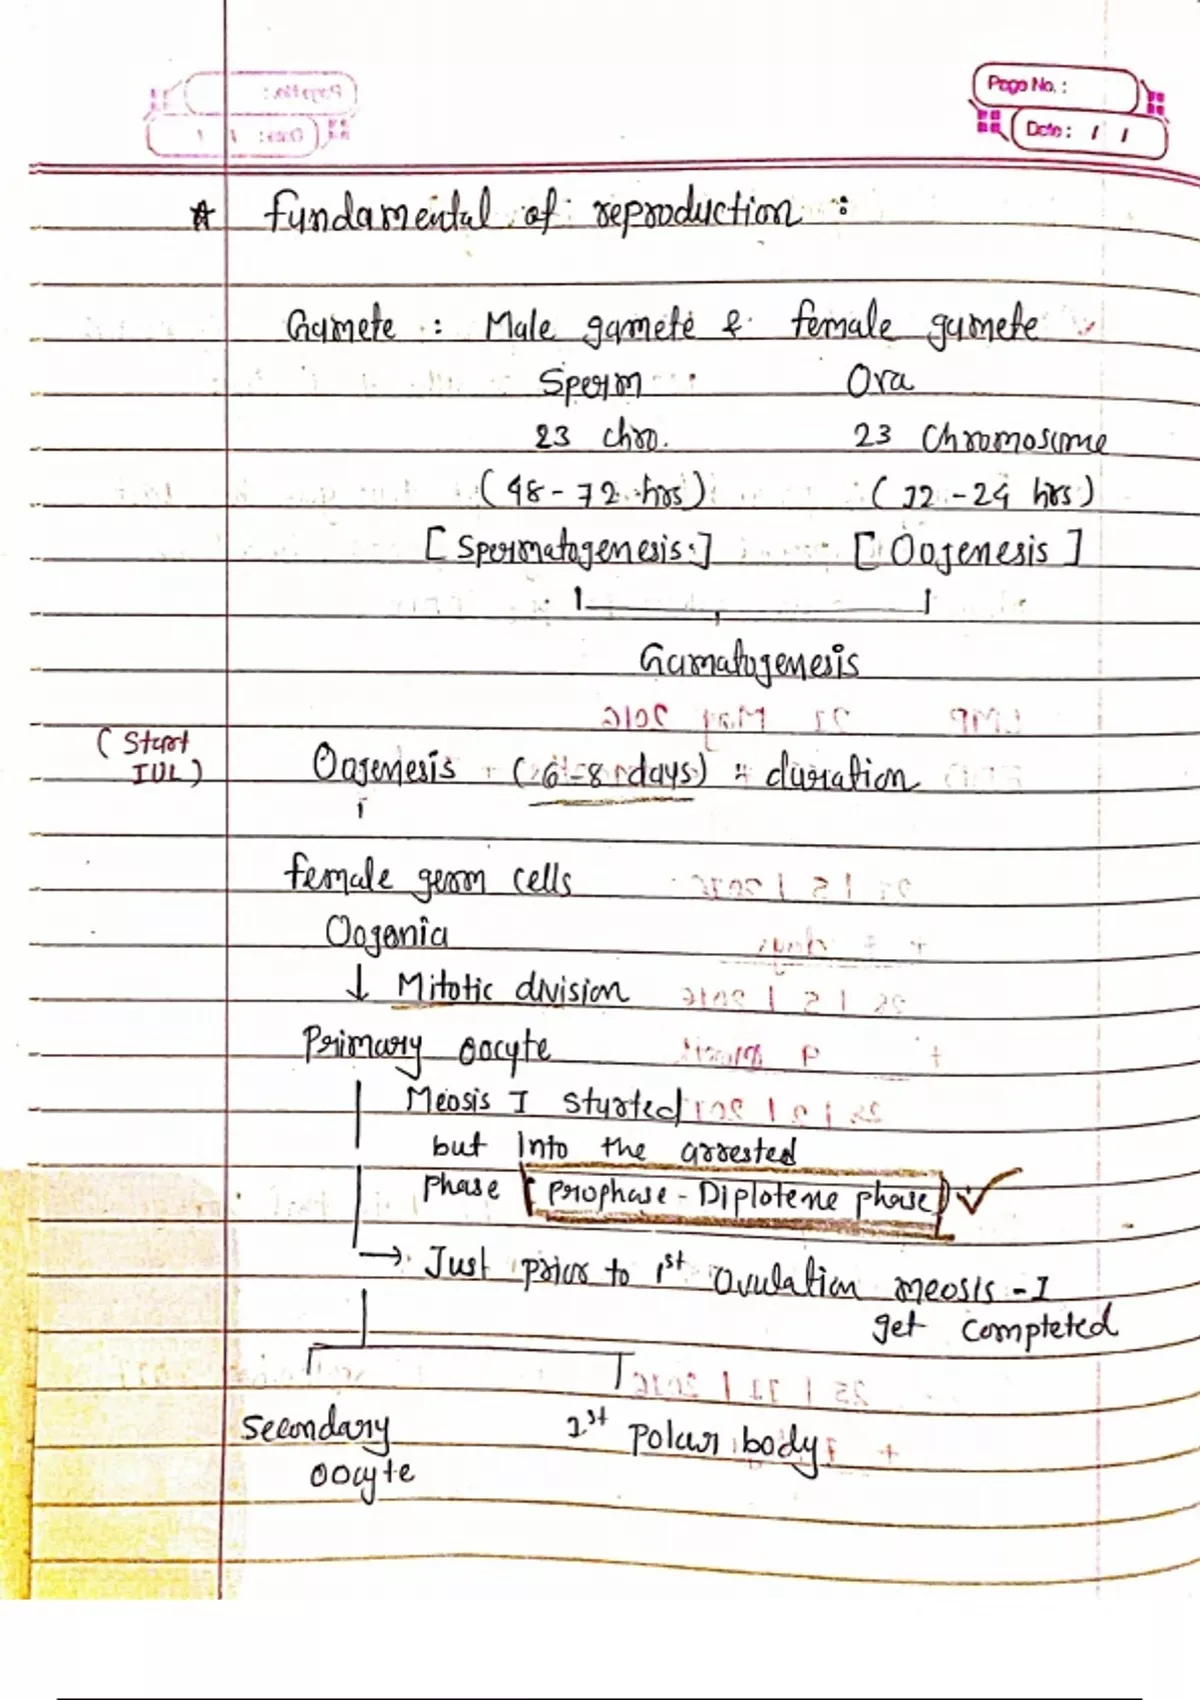 Page No. :
Date : / /
☆ Fundamental of reproduction :
Gamete : Male gamete & female gamete
Sperm Ova
23 chro. 23 Chromosome
(48 - 72 hrs) (12 - 24 hrs)
[Spermatogenesis] [Oogenesis]
Gamatogenesis
(Start IUL) Oogenesis (6-8 days) = duration
female germ cells
Oogonia
↓ Mitotic division
Primary oocyte
Meosis I started
but into the arrested
phase (prophase - Diplotene phase) ✓
→ Just prior to 1st Ovulation meosis - I
get completed
Secondary 1st Polar body
oocyte